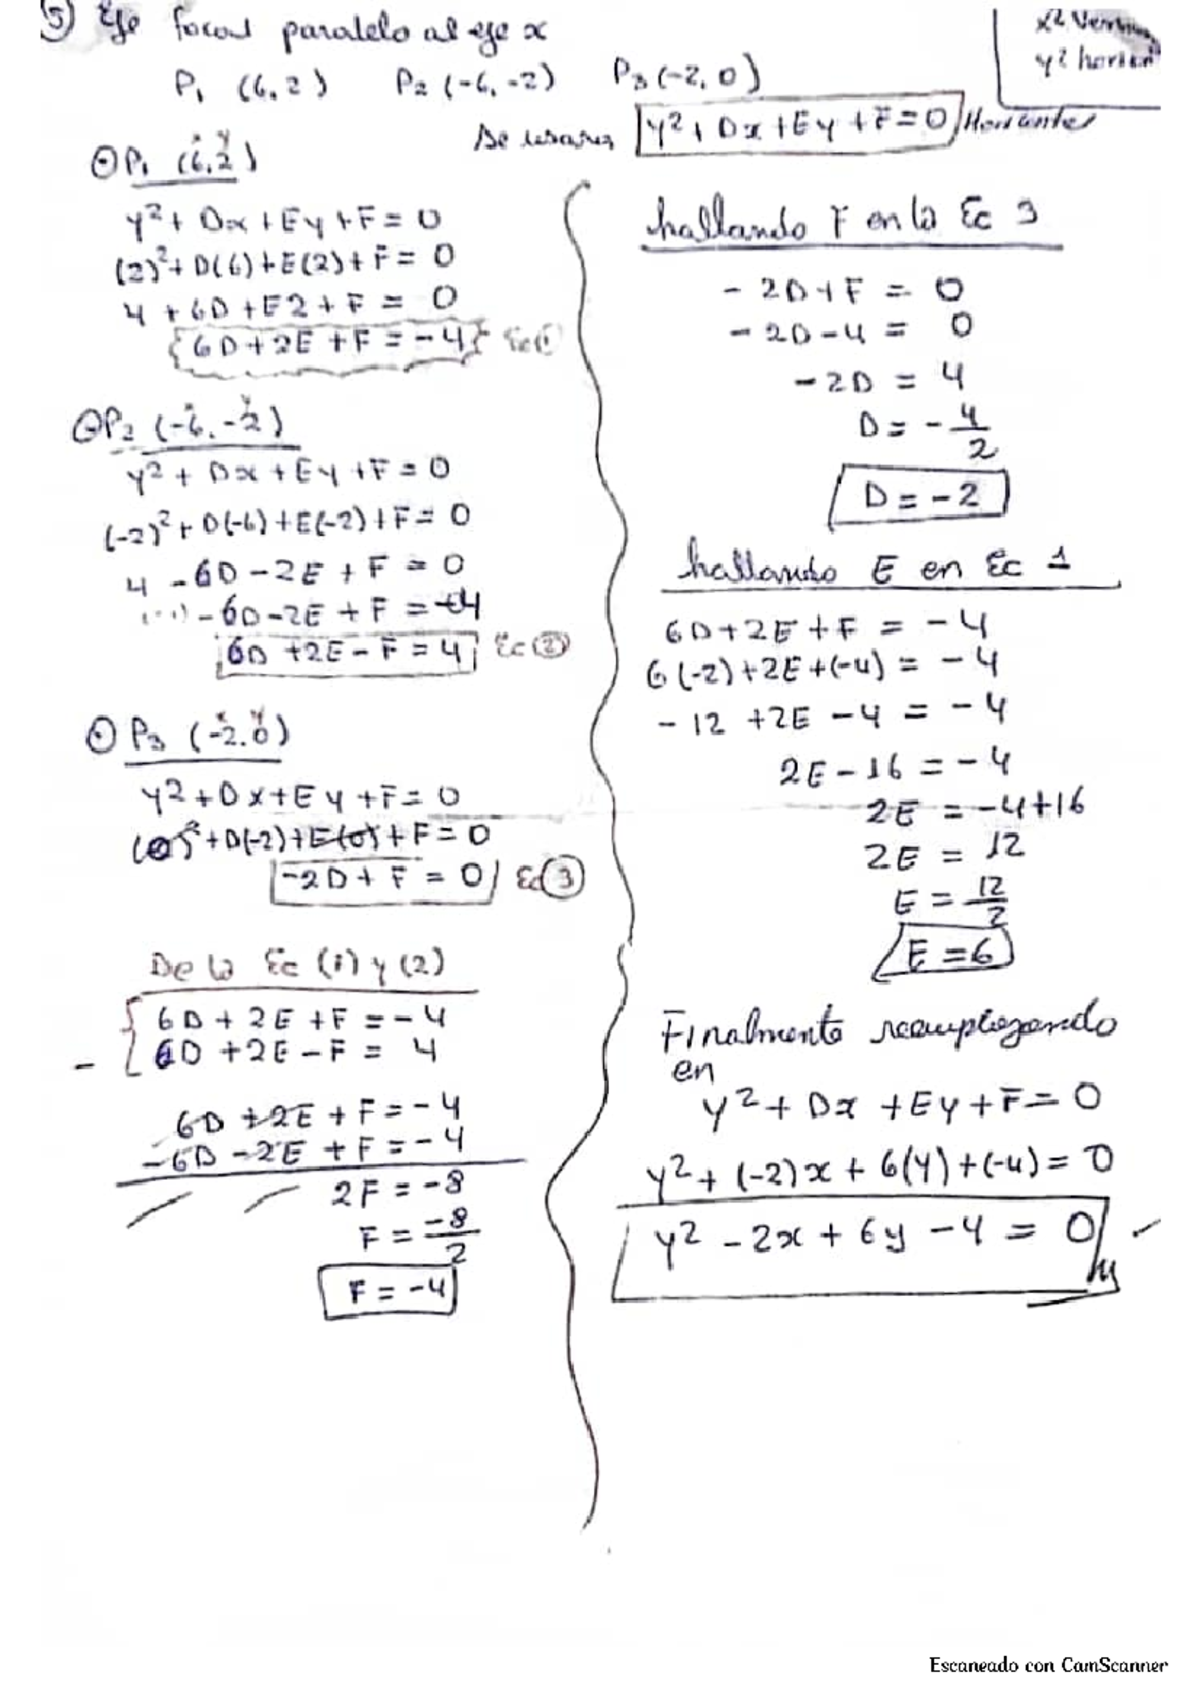 5) Eje focal paralelo al eje x
P₁ (6,2) P₂ (-6,-2) P₃ (-2,0)
x² Vertical
y² horizon
Se usara y²+Dx+Ey+F=0 Horizontal
⊙P₁ (6,2)
x y
y²+Dx+Ey+F=0
(2)²+D(6)+E(2)+F=0
4+6D+E2+F=0
6D+2E+F=-4 Ec(1)
⊙P₂ (-6,-2)
x y
y²+Dx+Ey+F=0
(-2)²+D(-6)+E(-2)+F=0
4-6D-2E+F=0
(-1)-6D-2E+F=-4
6D+2E-F=4 Ec(2)
⊙P₃ (-2,0)
x y
y²+Dx+Ey+F=0
(0)²+D(-2)+E(0)+F=0
-2D+F=0 Ec(3)
De la Ec (1) y (2)
6D+2E+F=-4
- 6D+2E-F=4
6D+2E+F=-4
-6D-2E+F=-4
2F=-8
F=-8/2
F=-4
hallando F en la Ec 3
-2D+F=0
-2D-4=0
-2D=4
D=-4/2
D=-2
hallando E en Ec 1
6D+2E+F=-4
6(-2)+2E+(-4)=-4
-12+2E-4=-4
2E-16=-4
2E=-4+16
2E=12
E=12/2
E=6
Finalmente reemplazando
en
y²+Dx+Ey+F=0
y²+(-2)x+6(y)+(-4)=0
y²-2x+6y-4=0
Escaneado con CamScanner